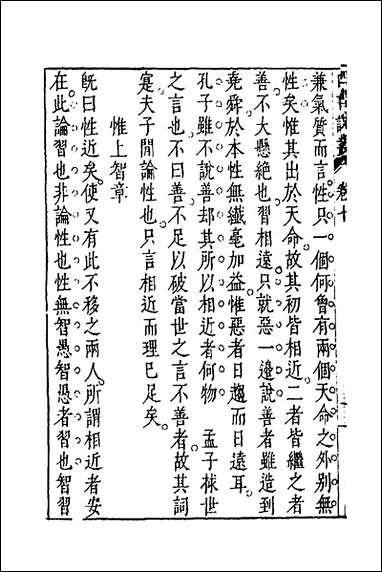 四書説叢 卷十
兼氣質而言性只一個何魯有兩個天命之外別無
性矣惟其出於天命故其初皆相近二者皆繼之者
善不大懸絶也習相遠只就惡一邊說善者雖造到
堯舜於本性無纖毫加益惟惡者日趨而日遠耳
孔子雖不說善却其所以相近者何物 孟子救世
之言也不曰善不足以破當世之言不善者故其詞
寔夫子閒論性也只言相近而理已足矣
惟上智章
既曰性近矣使又有此不移之兩人所謂相近者安
在此論習也非論性也性無智愚智愚者習也智習